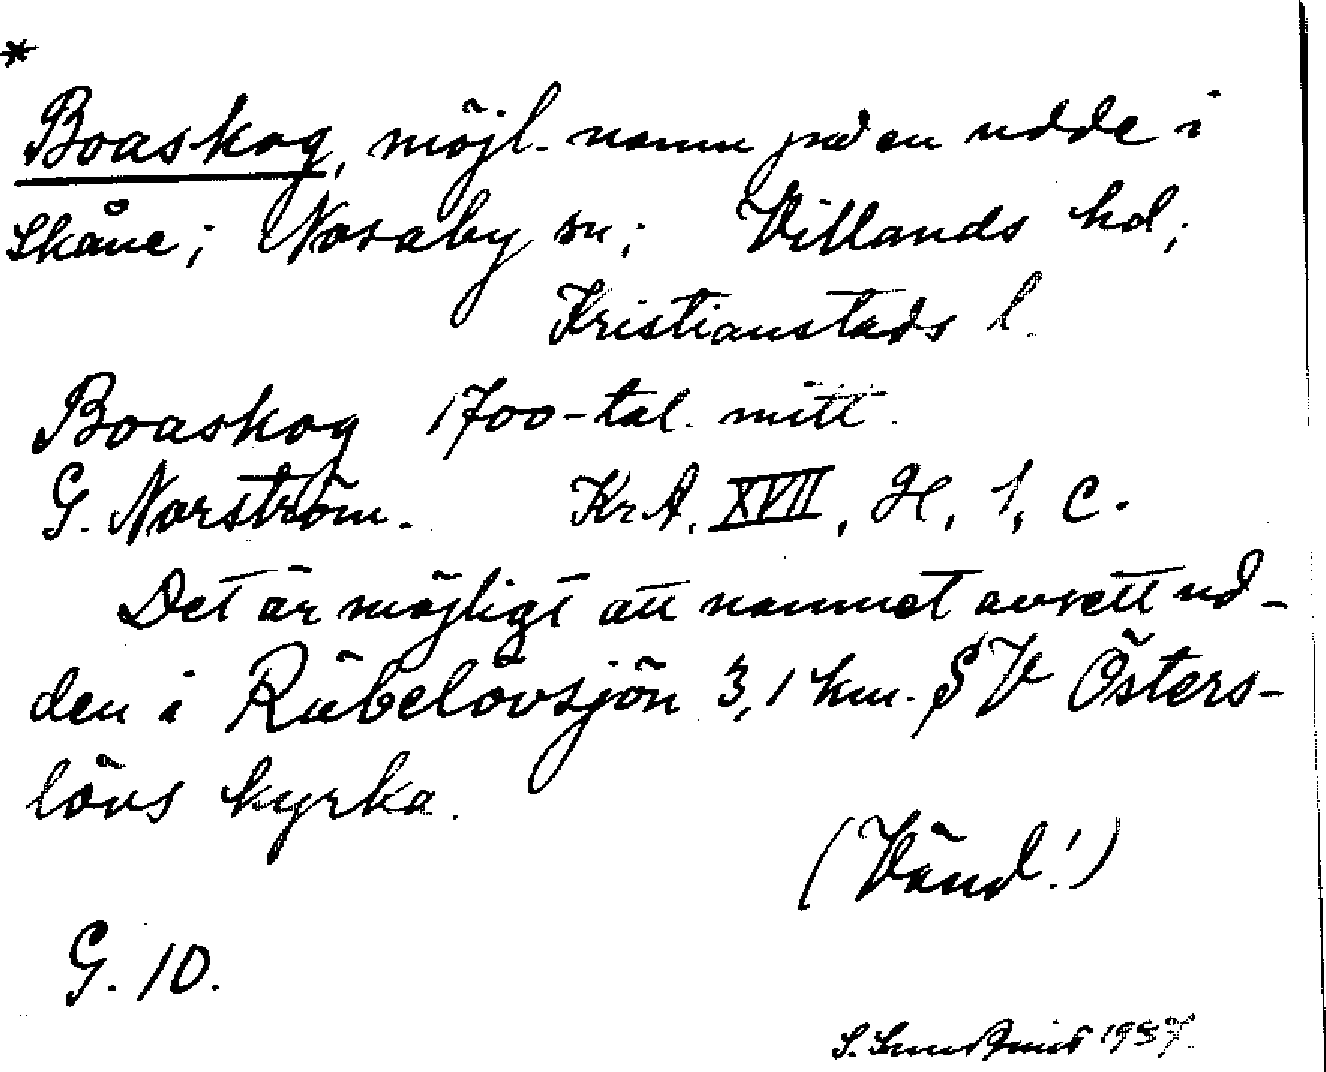 *
Boaskog, möjl. namn på en udde i
Skåne; Nosaby sn; Villands hd;
Kristianstads l.
Boaskog 1700-tal. mitt.
G. Norström. Kr.A. XVII, H, 1, c.
Det är möjligt att namnet avsett ud-
den i Råbelövsjön 3,1 km. SV Östers-
lövs kyrka.
(Vänd!)
G. 10.
S. 1937.